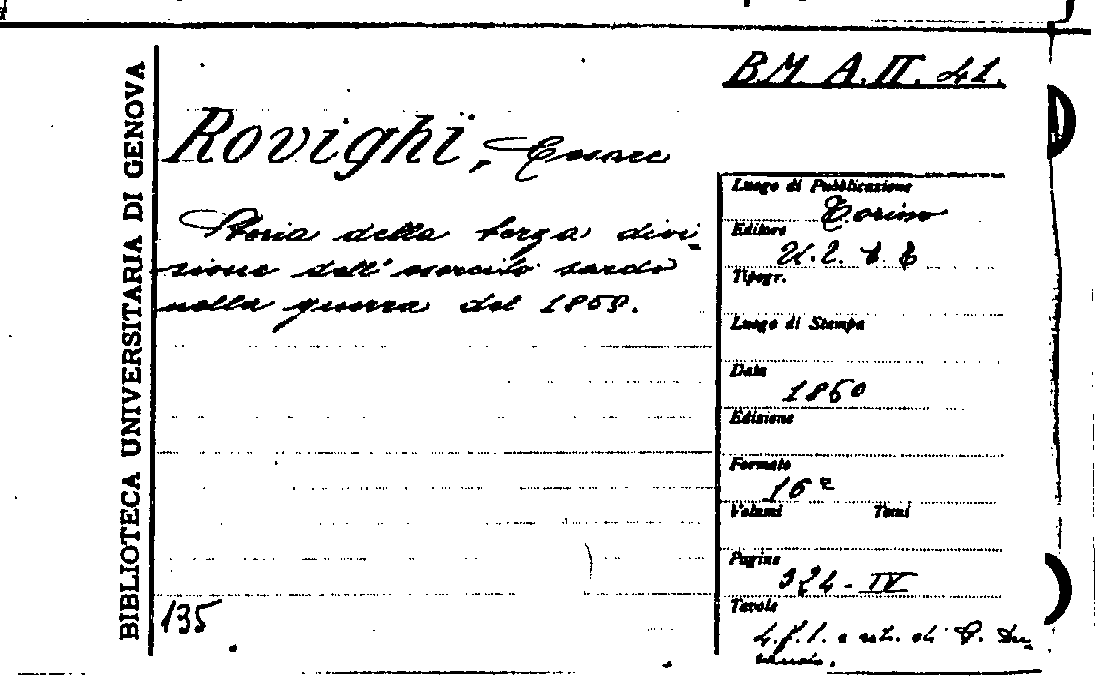 BIBLIOTECA UNIVERSITARIA DI GENOVA
B.M. A.II. 41.
Rovighi, Cesare
Storia della terza divi-
sione dell'esercito sardo
nella guerra del 1859.
135
Luogo di Pubblicazione
Torino
Editore
U.T.E.
Tipogr.
Luogo di Stampa
Data
1860
Edizione
Formato
16º
Volumi Tomi
Pagine
324-IV
Tavole
4. f. l. e rit. di